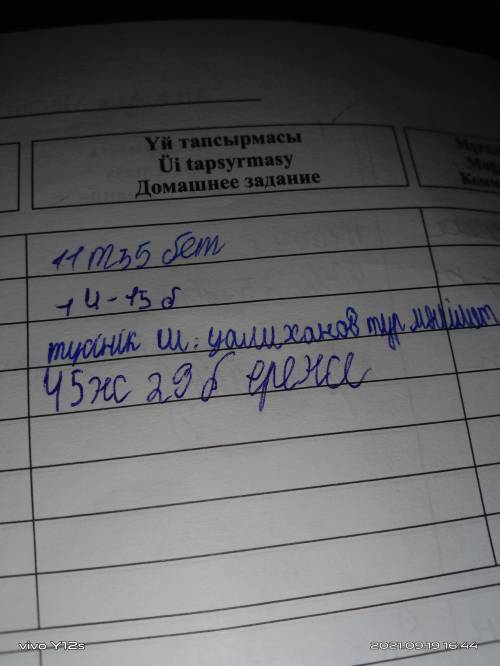 Үй тапсырмасы
Úi tapsyrmasy
Домашнее задание
Мұға
Ком
11 т 35 бет
14-15 б
түсінік Ш. уалиханов тур мәлімат
45ж 29 б ереже
vivo Y12s
2021.09.19 16:44